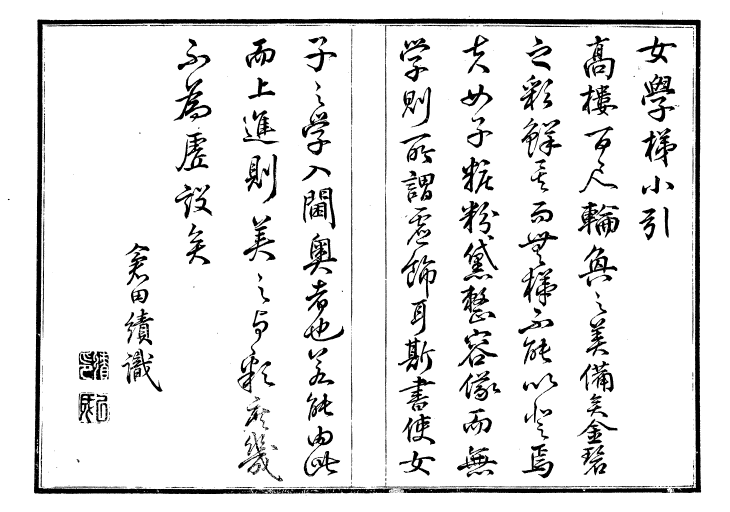 女學梯小引
高樓百尺輪奐之美備矣金碧
之彩鮮矣而無梯不能以登焉
夫女子粧粉黛整容儀而無
学則所謂虛飾耳斯書使女
子之学入閫奥者也若能由此
而上進則美之与彩庶幾
不為虛設矣
倉田績識